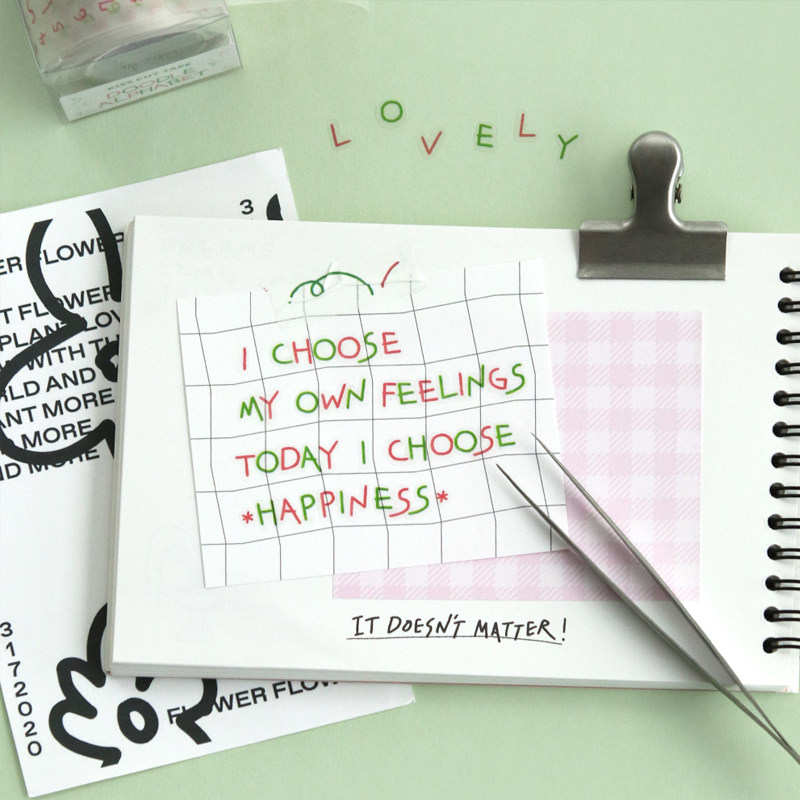 KISS CUT TAPE
DOODLE
ALPHABET
LOVELY
3
ER FLOWER
FLOWER
PLANT LOV
WITH TH
RLD AND
ANT MORE
MORE
ND MORE
I CHOOSE
MY OWN FEELINGS
TODAY I CHOOSE
*HAPPINESS*
IT DOESN'T MATTER!
3172020
FLOWER FLOW